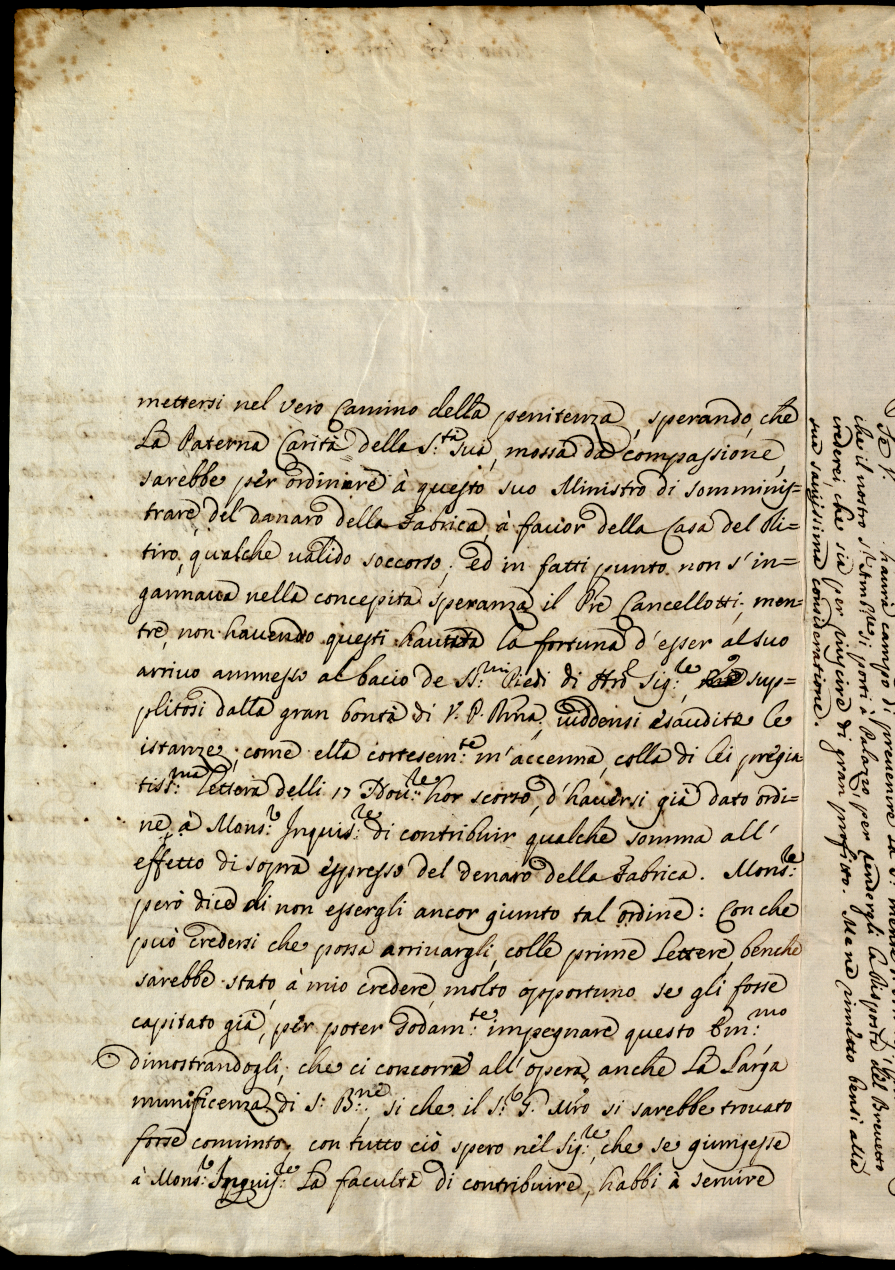 mettersi nel vero Camino della penitenza, sperando, che
La Paterna Carità della S.tà Sua, mossa da compassione
sarebbe per ordinare à questo suo Ministro di somminis=
trare del danaro della Fabrica, à favor della Casa del Ri=
tiro, qualche valido soccorso; Ed in fatti punto non s'in=
gannava nella concepita speranza il Pre Cancellotti; men=
tre, non havendo questi havuta la fortuna d'esser al suo
arrivo ammesso al bacio de SS.mi Piedi di Sig.re, sup=
plitosi dalla gran bontà di V. P. Rma, viddensi esaudite le
istanze, come ella cortesem.te m'accenna, colla di lei pregia
tiss.ma Lettera delli 17 Nov.re hor scorso, d'haversi già dato ordi=
ne, à Mons.r Inquis.re di contribuir qualche somma all'
effetto di sopra espresso del denaro della Fabrica. Mons.re
però dice di non essergli ancor giunto tal ordine: Con che
può credersi che possa arrivargli colle prime Lettere, benche
sarebbe stato, à mio credere, molto opportuno se gli fosse
capitato già, per poter sodam.te impegnare questo Em.mo
dimostrandogli, che ci concorre all'opera, anche La Larga
munificenza di S. B.ne, si che il S.r G. Mro si sarebbe trovato
forse convinto, con tutto ciò spero nel Sig.re, che se giungesse
à Mons.r Inquis.re La facultà di contribuire, habbi à servire
Se V. havrà campo di premunire
che il nostro S.r Amb.re si porti à Palazzo per rendergli la Risposta del Brevetto
crederei che sia per riuscire di gran profitto. Me ne rimetto bensì alla
sua savissima consideratione.